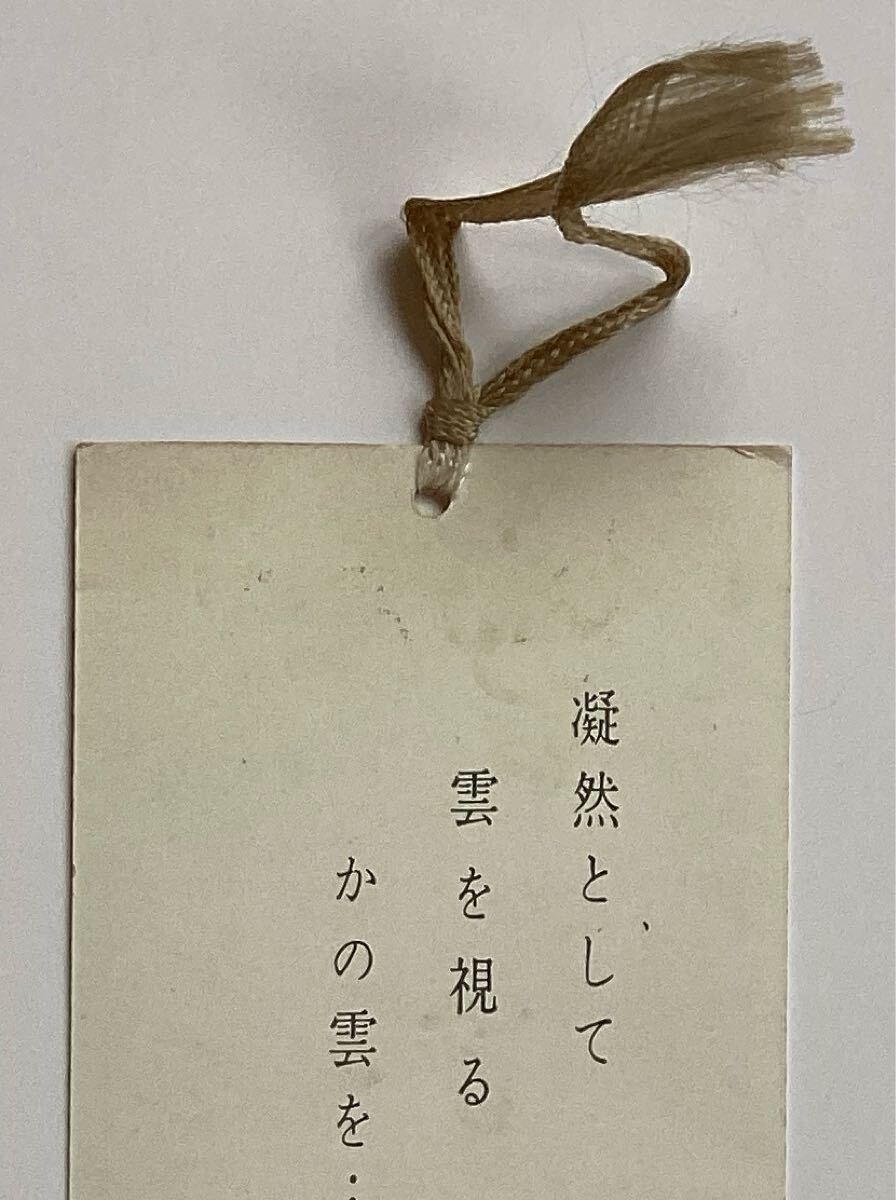 凝然として
雲を視る
かの雲を・